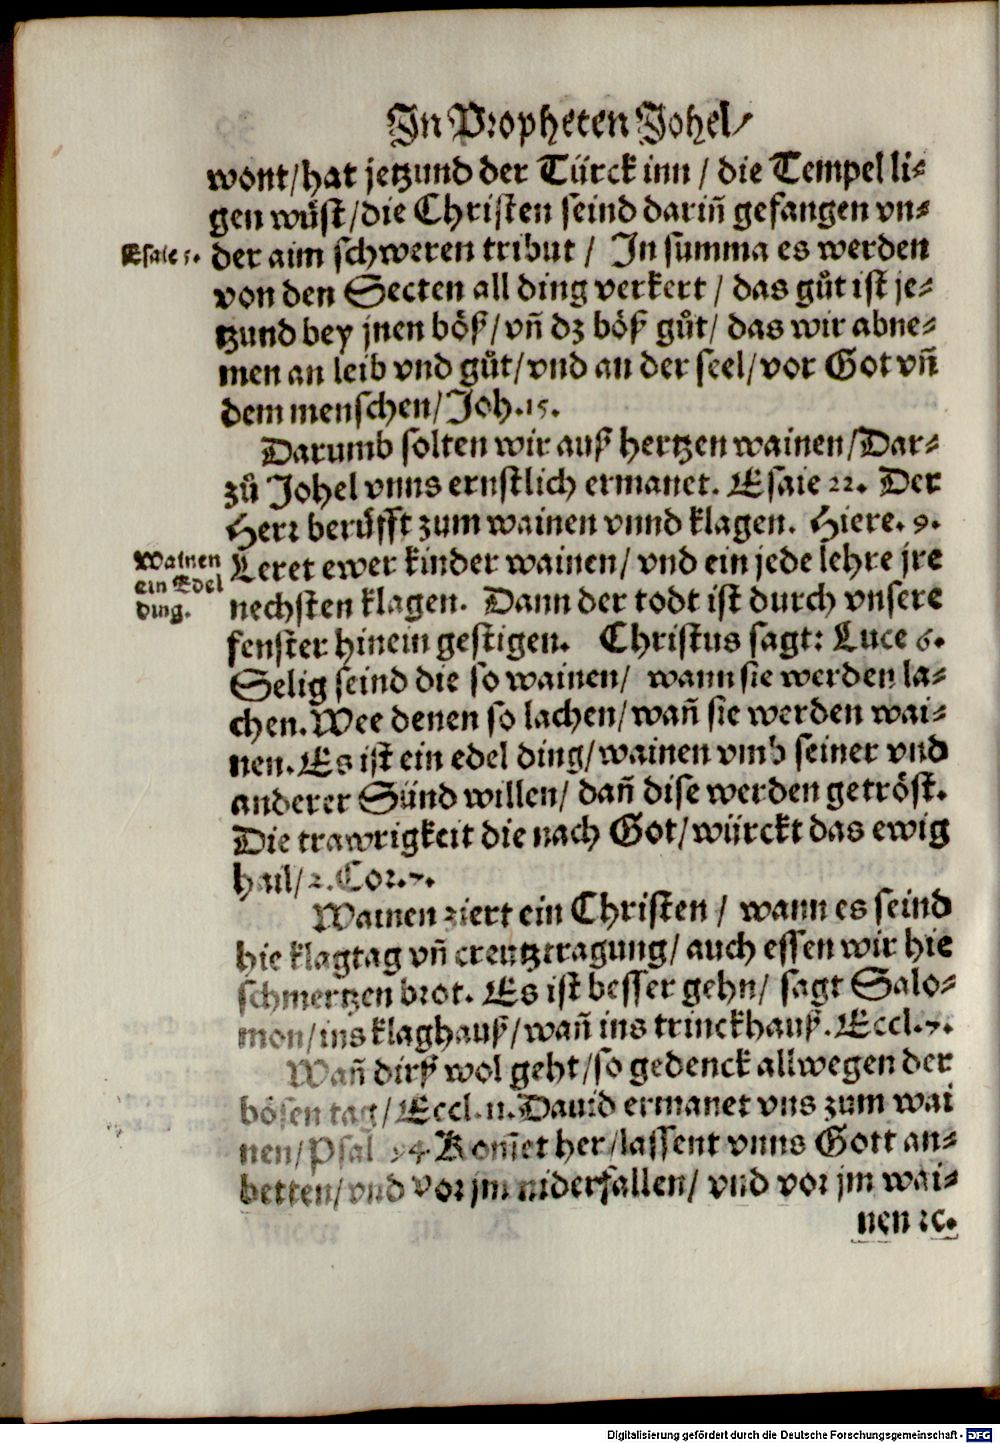 In Propheten Johel/
wont/hat jetzund der Türck inn / die Tempel li⸗
gen wüst/die Christen seind dariñ gefangen vn⸗
Esaie 5. der aim schweren tribut / In summa es werden
von den Secten all ding verkert / das gůt ist je⸗
tzund bey jnen böß/vñ dz böß gůt/ das wir abne⸗
men an leib vnd gůt/vnd an der seel/vor Got vñ
dem menschen/Joh.15.
Darumb solten wir auß hertzen wainen/Dar⸗
zů Johel vnns ernstlich ermanet. Esaie 22. Der
Herr berůfft zum wainen vnnd klagen. Hiere. 9.
Leret ewer kinder wainen/ vnd ein jede lehre jre
Wainen
ein Edel
ding.
nechsten klagen. Dann der todt ist durch vnsere
fenster hinein gestigen. Christus sagt: Luce 6.
Selig seind die so wainen/ wann sie werden la⸗
chen. Wee denen so lachen/wañ sie werden wai⸗
nen. Es ist ein edel ding/wainen vmb seiner vnd
anderer Sünd willen/ dañ dise werden getröst.
Die trawrigkeit die nach Got/würckt das ewig
hail/2.Cor.7.
Wainen ziert ein Christen / wann es seind
hie klagtag vñ creutztragung/auch essen wir hie
schmertzen brot. Es ist besser gehn/ sagt Salo⸗
mon/ins klaghauß/wañ ins trinckhauß. Eccl.7.
Wañ dirß wol geht/so gedenck allwegen der
bösen tag/Eccl.11.Dauid ermanet vns zum wai
nen/Psal 94. Kom̃et her/lassent vnns Gott an⸗
betten/vnd vor jm niderfallen/ vnd vor jm wai⸗
nen ꝛc.
Digitalisierung gefördert durch die Deutsche Forschungsgemeinschaft - DFG